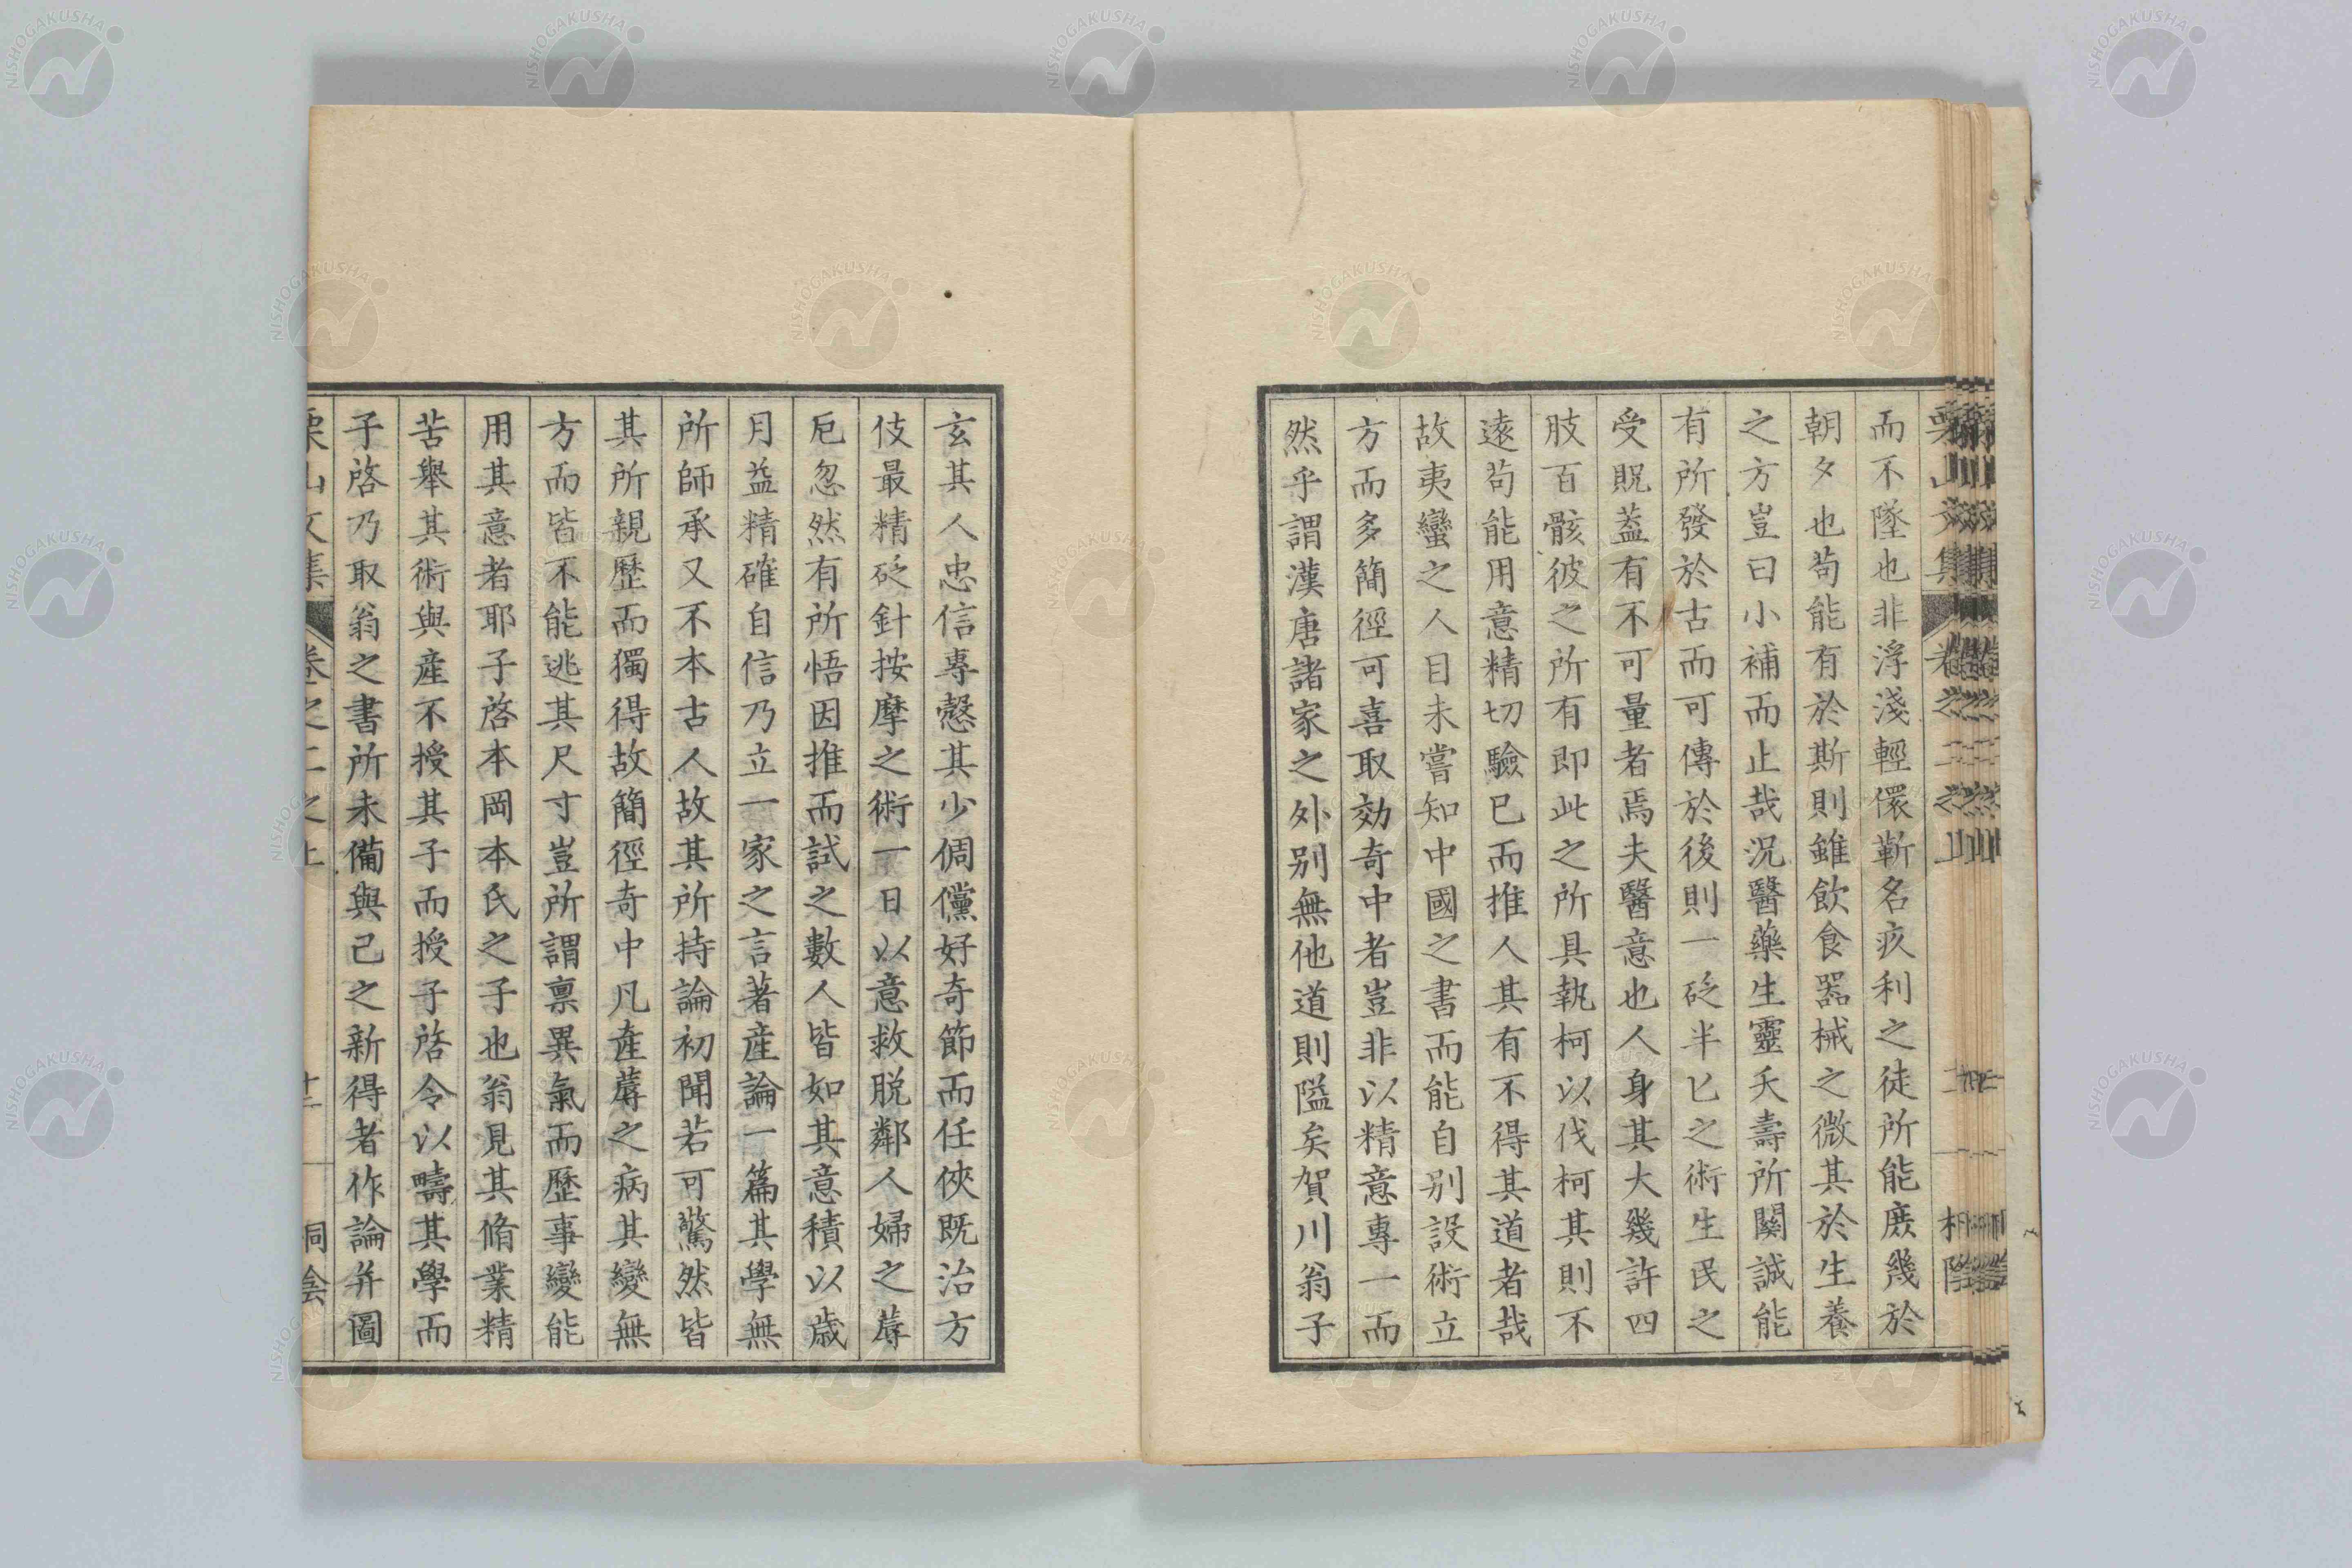 而不墜也非浮淺輕儇蘄名疚利之徒所能庶幾於
朝夕也苟能有於斯則雖飲食器械之微其於生養
之方豈曰小補而止哉況醫藥生靈夭壽所關誠能
有所發於古而可傳於後則一砭半匕之術生民之
受貺蓋有不可量者焉夫醫意也人身其大幾許四
肢百骸彼之所有即此之所具執柯以伐柯其則不
遠苟能用意精切驗已而推人其有不得其道者哉
故夷蠻之人目未嘗知中國之書而能自別設術立
方而多簡徑可喜取効奇中者豈非以精意專一而
然乎謂漢唐諸家之外別無他道則隘矣賀川翁子
玄其人忠信專愨其少倜儻好奇節而任俠既治方
伎最精砭針按摩之術一日以意救脱鄰人婦之蓐
厄忽然有所悟因推而試之數人皆如其意積以歳
月益精確自信乃立一家之言著産論一篇其學無
所師承又不本古人故其所持論初聞若可驚然皆
其所親歷而獨得故簡徑奇中凡産蓐之病其變無
方而皆不能逃其尺寸豈所謂禀異氣而歷事變能
用其意者耶子啓本岡本氏之子也翁見其脩業精
苦舉其術與産不授其子而授子啓令以疇其學而
子啓乃取翁之書所未備與己之新得者作論并圖
栗山文集 卷之二之上 十二 桐陰